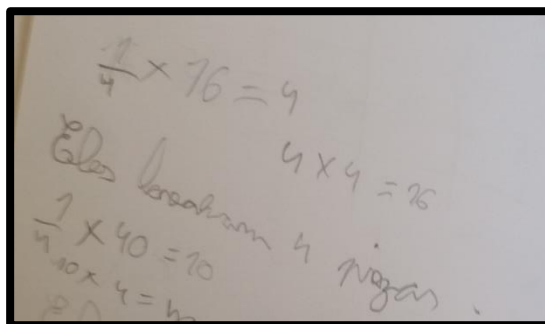 1/4 × 16 = 4
4 × 4 = 16
Eles levaram 4 pizzas.
1/4 × 40 = 10
10 × 4 =